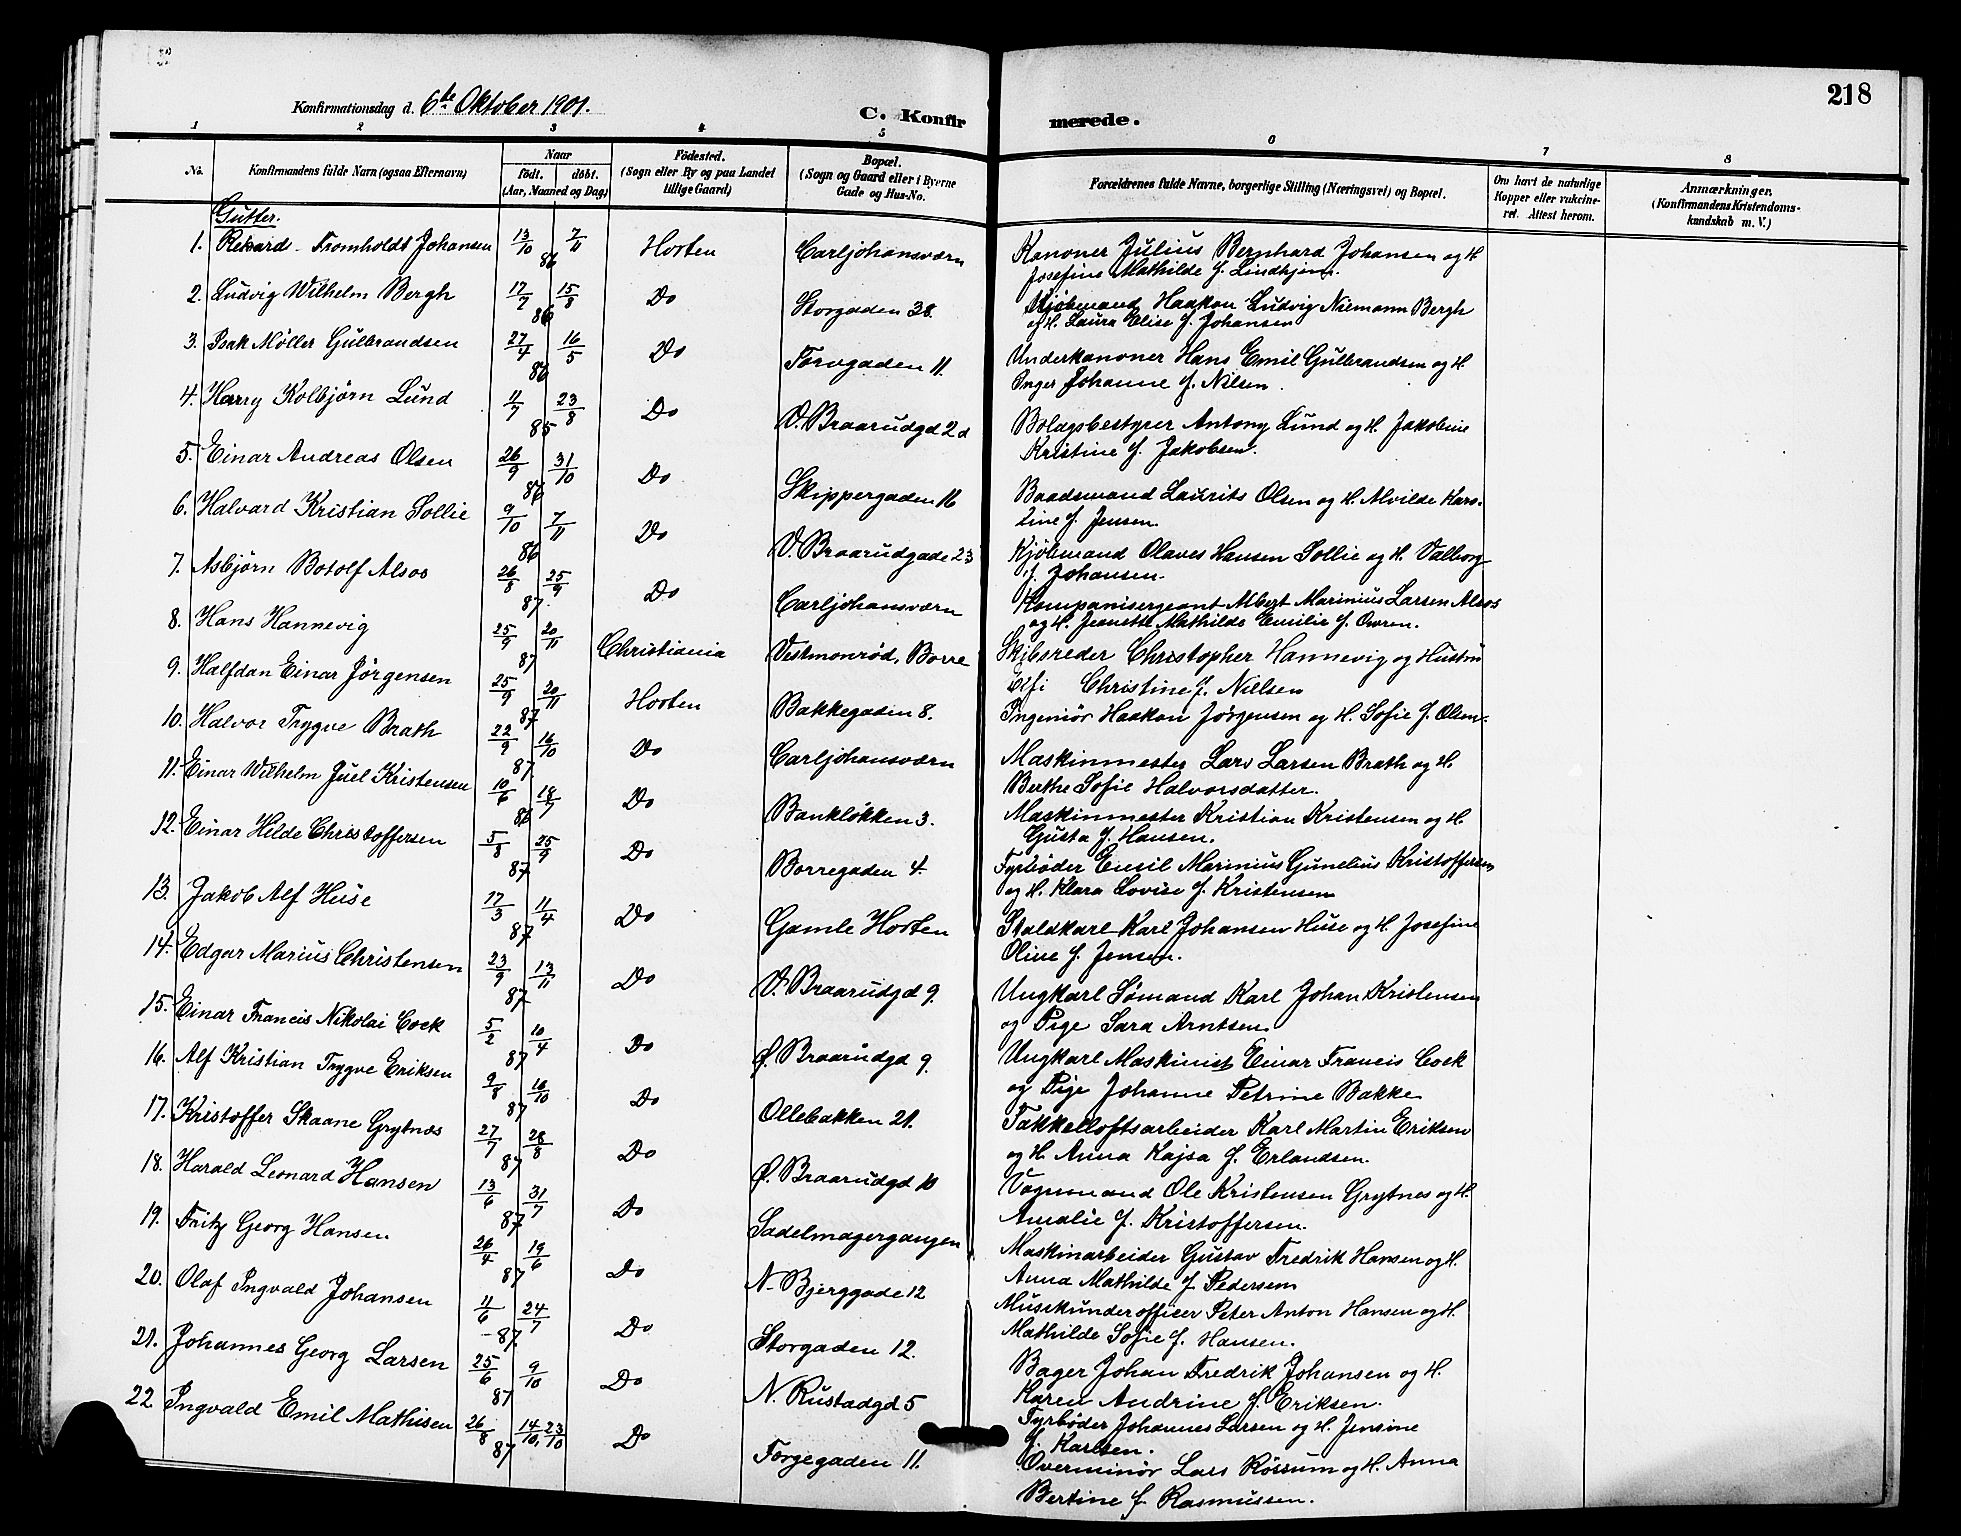 218
Konfirmationsdag d. 6te Oktober 1901.
C. Konfirmerede.
1 2 3 4 5 6 7 8
No. Konfirmandens fulde Navn (ogsaa Efternavn) Naar født. døbt. (Aar, Maaned og Dag) Fødested. (Sogn eller By og paa Landet tillige Gaard) Bopæl. (Sogn og Gaard eller i Byerne Gade og Hus-No. Forældrenes fulde Navne, borgerlige Stilling (Næringsvei) og Bopæl. Om havt de naturlige Kopper eller vakcineret. Attest herom. Anmærkninger. (Konfirmandens Kristendomskundskab m. V.)
Gutter.
1. Rikard Fromholdt Johansen 13/10 86 7/11 Horten Carljohansværn Kanoner Julius Bernhard Johansen og H
Josefine Mathilde f. Lindhjem.
2. Ludvig Wilhelm Bergh 17/7 86 15/8 Do Storgaden 38. Kjøbmand Haakon Ludvig Niemann Bergh
og H. Laura Elise f. Johansen
3. Isak Møller Gulbrandsen 27/4 86 16/5 Do Torvgaden 11. Underkanoner Hans Emil Gulbrandsen og H.
Inger Johanne f. Nilsen.
4. Harry Kolbjørn Lund 11/7 85 23/8 Do V. Braarudgd 2d Bolagsbestyrer Antony Lund og H. Jakobine
Kristine f. Jakobsen.
5. Einar Andreas Olsen 26/9 86 31/10 Do Skippergaden 16 Baadsmand Laurits Olsen og H. Alvilde Karo-
line f. Jensen.
6. Halvard Kristian Sollie 9/10 86 7/11 Do V. Braarudgade 23 Kjøbmand Olaves Hansen Sollie og H. Valborg
f. Johansen.
7. Asbjørn Botolf Alsos 26/8 87. 25/9 Do Carljohansværn Kompanisergeant Albert Marinius Larsen Alsos
og H. Jeanette Mathilde Emilie f. Owren.
8. Hans Hannevig 25/9 87 20/11 Christiania Vestmonrød, Borre Skibsreder Christopher Hannevig og Hustru
Elfi Christine f. Nielsen
9. Halfdan Einar Jörgensen 25/9 87 20/11 Horten Bakkegaden 8. Ingeniør Haakon Jörgensen og H. Sofie f. Olsen.
10. Halvor Trygve Brath 22/9 87 16/10 Do Carljohansværn Maskinmester Lars Larsen Brath og H.
Berthe Sofie Halvorsdatter.
11. Einar Wilhelm Juel Kristensen 10/6 86 18/7 Do Bankløkken 3. Maskinmester Kristian Kristensen og H.
Gusta f. Hansen.
12. Einar Hilde Christoffersen 5/8 87 25/9 Do Borregaden 4. Fyrbøder Emil Marinius Gunelius Kristoffersen
og H. Klara Lovise f. Kristensen
13. Jakob Alf Huse 17/3 87 11/4 Do Gamle Horten Staldkarl Karl Johansen Huse og H. Josefine
Oline f. Jensen.
14. Edgar Marius Christensen 23/9 87 13/11 Do V. Braarudgd 9. Ungkarl Sömand Karl Johan Kristensen
og Pige Sara Arntsen
15. Einar Francis Nikolai Cock 5/2 87 10/4 Do Ø. Braarudgd 9 Ungkarl Maskinist Einar Francis Cock
og Pige Johanne Petrine Bakke
16. Alf Kristian Trygve Eriksen 9/8 87 16/10 Do Ollebakken 21. Takkelloftsarbeider Karl Martin Eriksen
og H. Anna Kajsa f. Erlandsen.
17. Kristoffer Skaane Grytnes 27/7 87 28/8 Do Ø. Braarudgd 10 Vognmand Ole Kristensen Grytnes og H.
Amalie f. Kristoffersen.
18. Harald Leonard Hansen 13/6 87 31/7 Do Sadelmagergangen Maskinarbeider Gustav Fredrik Hansen og H.
Anna Mathilde f. Pedersen
19. Fritz Georg Hansen 26/4 87 19/6 Do N. Bjerggade 12 Musikunderofficer Peter Anton Hansen og H.
Mathilde Sofie f. Hansen.
20. Olaf Ingvald Johansen 11/6 87. 24/7 Do Storgaden 12. Bager Johan Fredrik Johansen og H.
Karen Andrine f. Eriksen.
21. Johannes Georg Larsen 25/6 87 9/10 Do N. Rustadgd 5 Fyrbøder Johannes Larsen og H. Jensine
f. Karlsen.
22. Ingvald Emil Mathisen 26/8 87 14/10, 23/10 Do Torgegaden 11. Overminör Lars Rössum og H. Anna
Bertine f. Rasmussen.